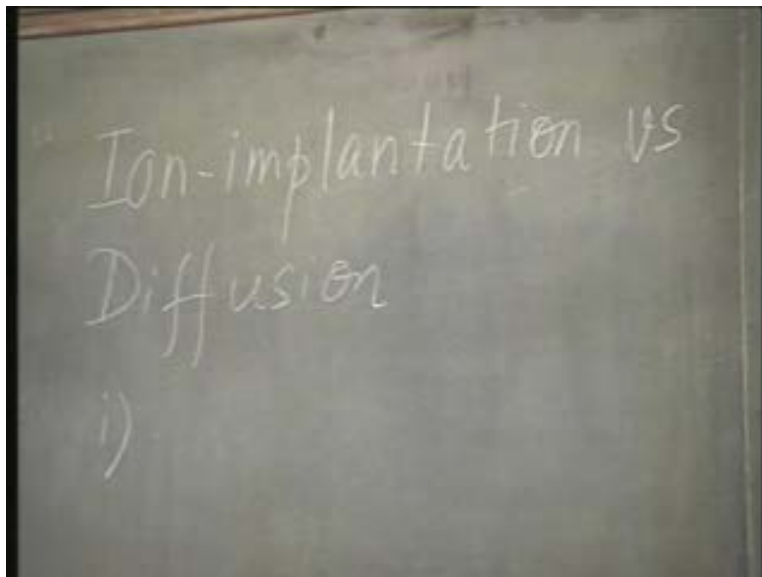 Ion-implantation vs
Diffusion
i)